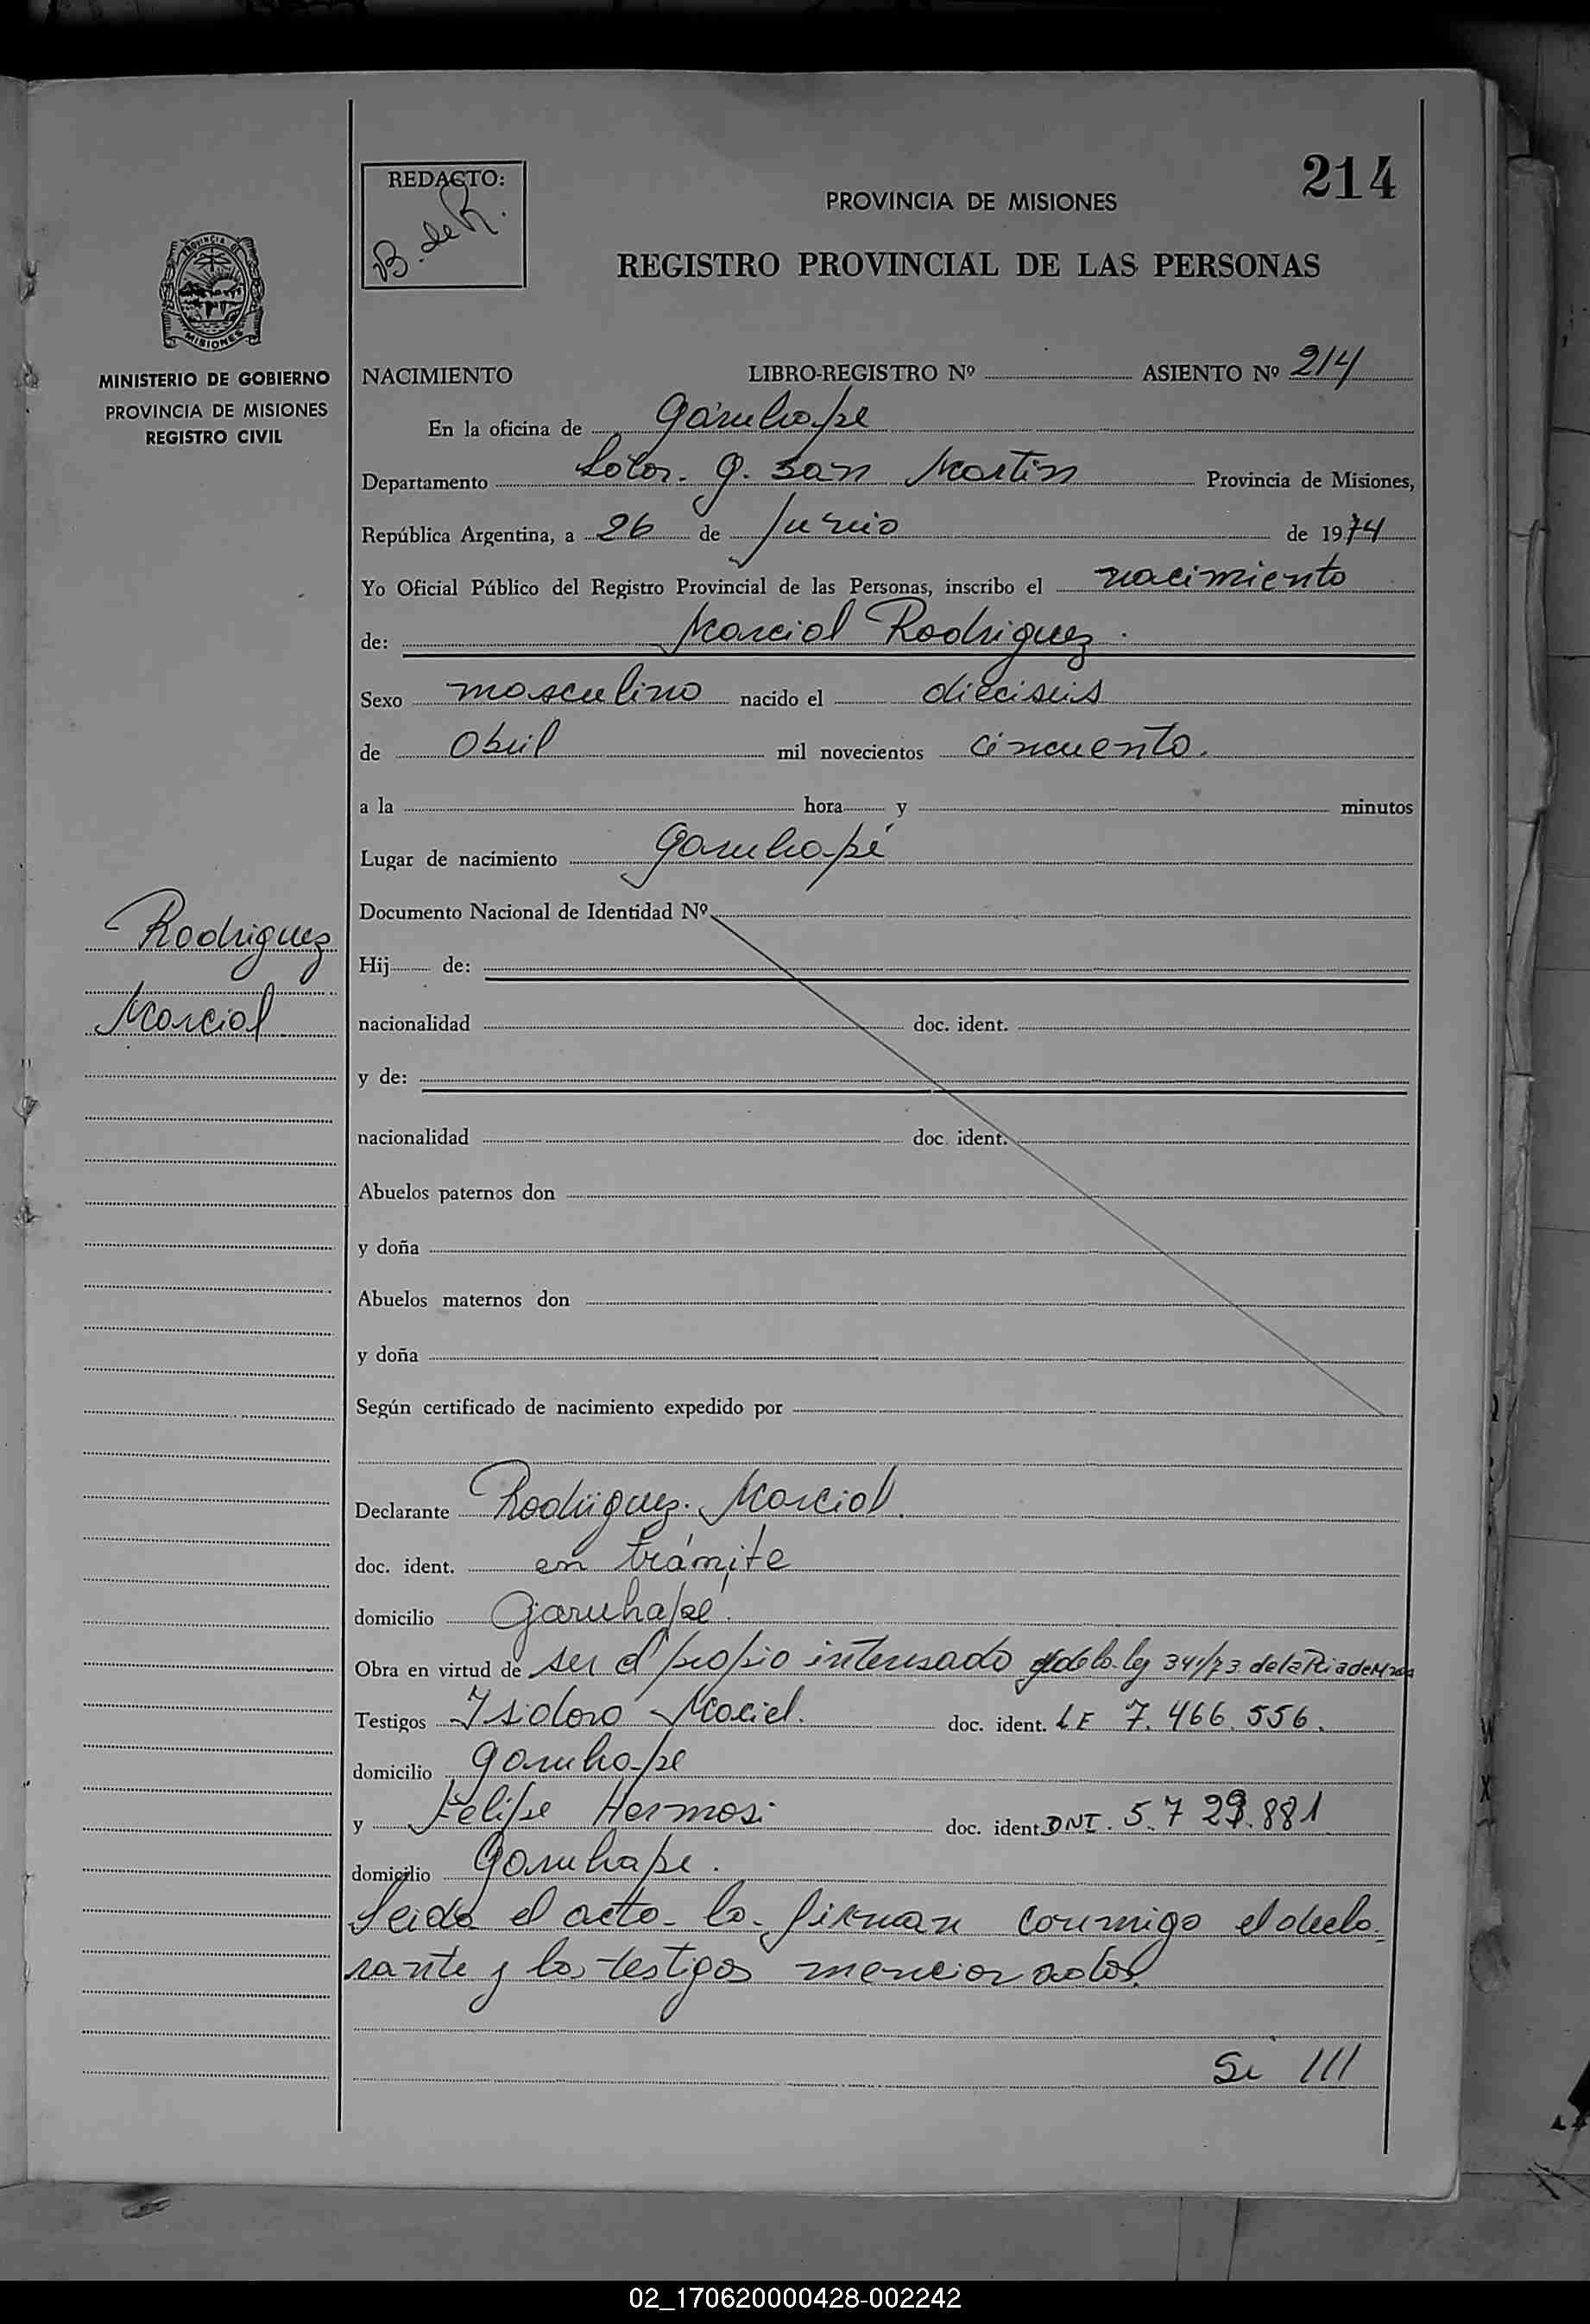 214
REDACTO:
B. de R.
PROVINCIA DE MISIONES
REGISTRO PROVINCIAL DE LAS PERSONAS
PROVINCIA DE
MISIONES
MINISTERIO DE GOBIERNO
PROVINCIA DE MISIONES
REGISTRO CIVIL
NACIMIENTO LIBRO-REGISTRO Nº ASIENTO Nº 214
En la oficina de Garuhape
Departamento Lptor. g. San Martin Provincia de Misiones,
República Argentina, a 26 de Junio de 1974
Yo Oficial Público del Registro Provincial de las Personas, inscribo el nacimiento
de: Marcial Rodriguez.
Sexo masculino nacido el dieciseis
de Abril mil novecientos cincuenta.
a la hora y minutos
Lugar de nacimiento Garuhapé
Documento Nacional de Identidad Nº
Rodriguez
Marcial
Hij de:
nacionalidad doc. ident.
y de:
nacionalidad doc. ident.
Abuelos paternos don
y doña
Abuelos maternos don
y doña
Según certificado de nacimiento expedido por
Declarante Rodriguez. Marcial.
doc. ident. en trámite
domicilio Garuhapé.
Obra en virtud de ser el propio interesado de la ley 341/73 de la
Testigos Isidoro Maciel. doc. ident. LE 7.466.556.
domicilio Garuhape
y Felipe Hermosi doc. ident DNI. 5.729.881
domicilio Garuhape.
Leida el acta la firman conmigo el decla-
rante y los testigos mencionados.
Si ///
02_170620000428-002242